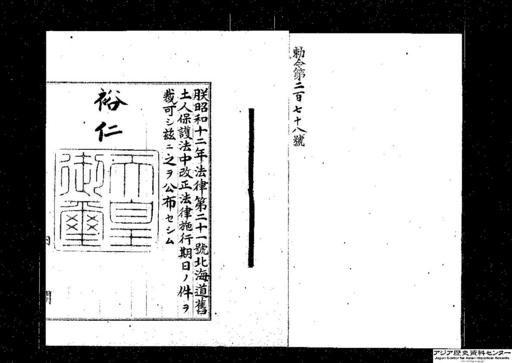 勅令第二百七十八號
朕昭和十二年法律第二十一號北海道舊
土人保護法中改正法律施行期日ノ件ヲ
裁可シ玆ニ之ヲ公布セシム
裕仁
天皇
御璽
内閣
アジア歴史資料センター
Japan Center for Asian Historical Records